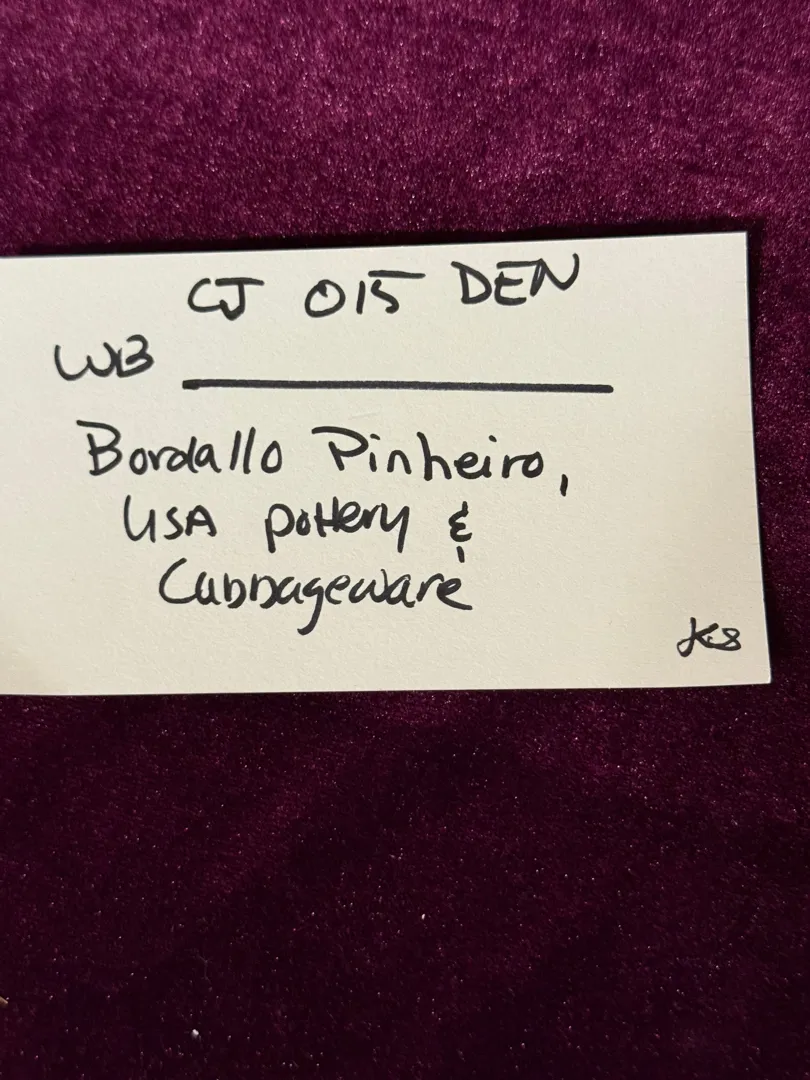 CJ 015 DEN
WB
Bordallo Pinheiro,
USA pottery &
Cabbageware
KS